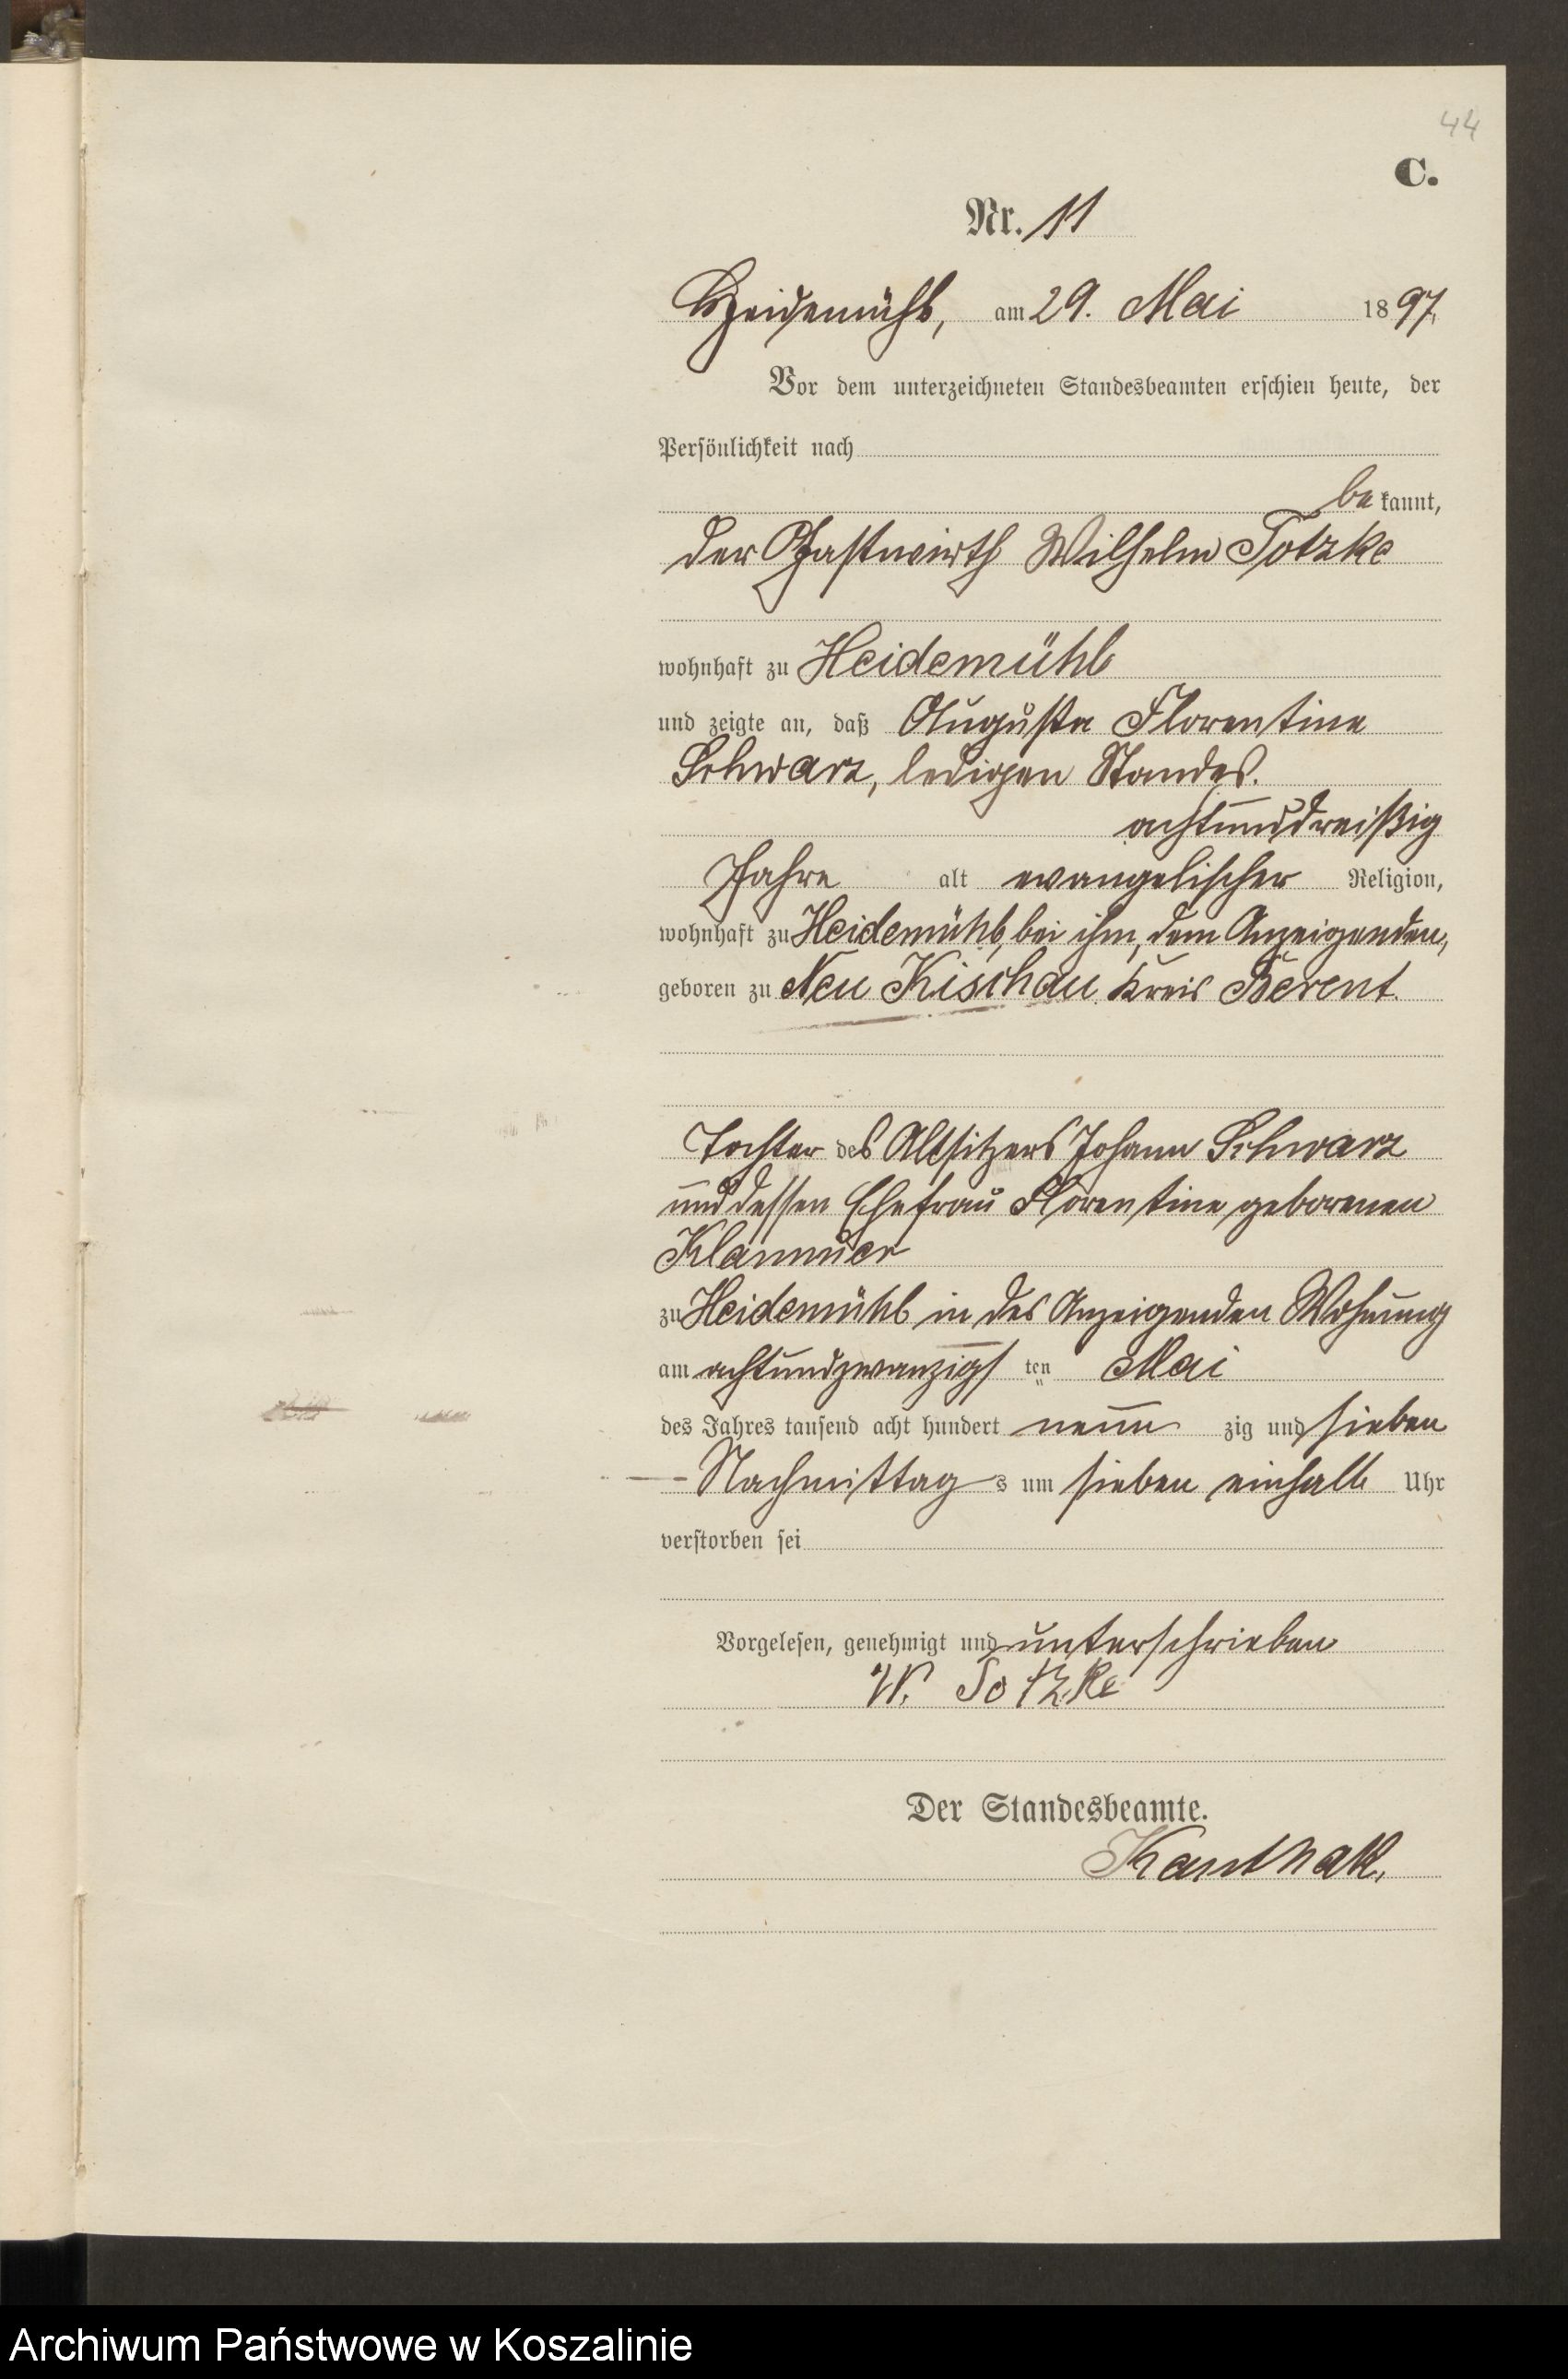 44
C.
Nr. 11
Heidemühl, am 29. Mai 1897.
Vor dem unterzeichneten Standesbeamten erschien heute, der
Persönlichkeit nach
bekannt,
der Gastwirth Wilhelm Totzke
wohnhaft zu Heidemühl
und zeigte an, daß Augusta Florentine
Schwarz, ledigen Standes.
achtunddreißig
Jahre alt evangelischer Religion,
wohnhaft zu Heidemühl, bei ihm, dem Anzeigenden,
geboren zu Neu Kischau Kreis Berent
Tochter des Altsitzers Johann Schwarz
und dessen Ehefrau Florentine geborenen
zu Heidemühl in des Anzeigenden Wohnung
am achtundzwanzigsten Mai
des Jahres tausend acht hundert neunzig und sieben
Nachmittags um sieben einhalb Uhr
verstorben sei
Vorgelesen, genehmigt und unterschrieben
W. Totzke
Der Standesbeamte.
Kanthak.
Archiwum Państwowe w Koszalinie